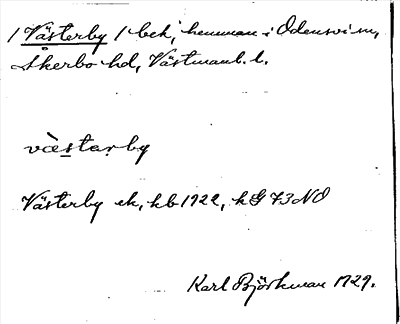 / Västerby / bek, hemman i Odensvi sn,
Åkerbo hd, Västmanl. l.
vàstarby
Västerby ek, hb 1922, kG 73 NO
Karl Björkman 1929.